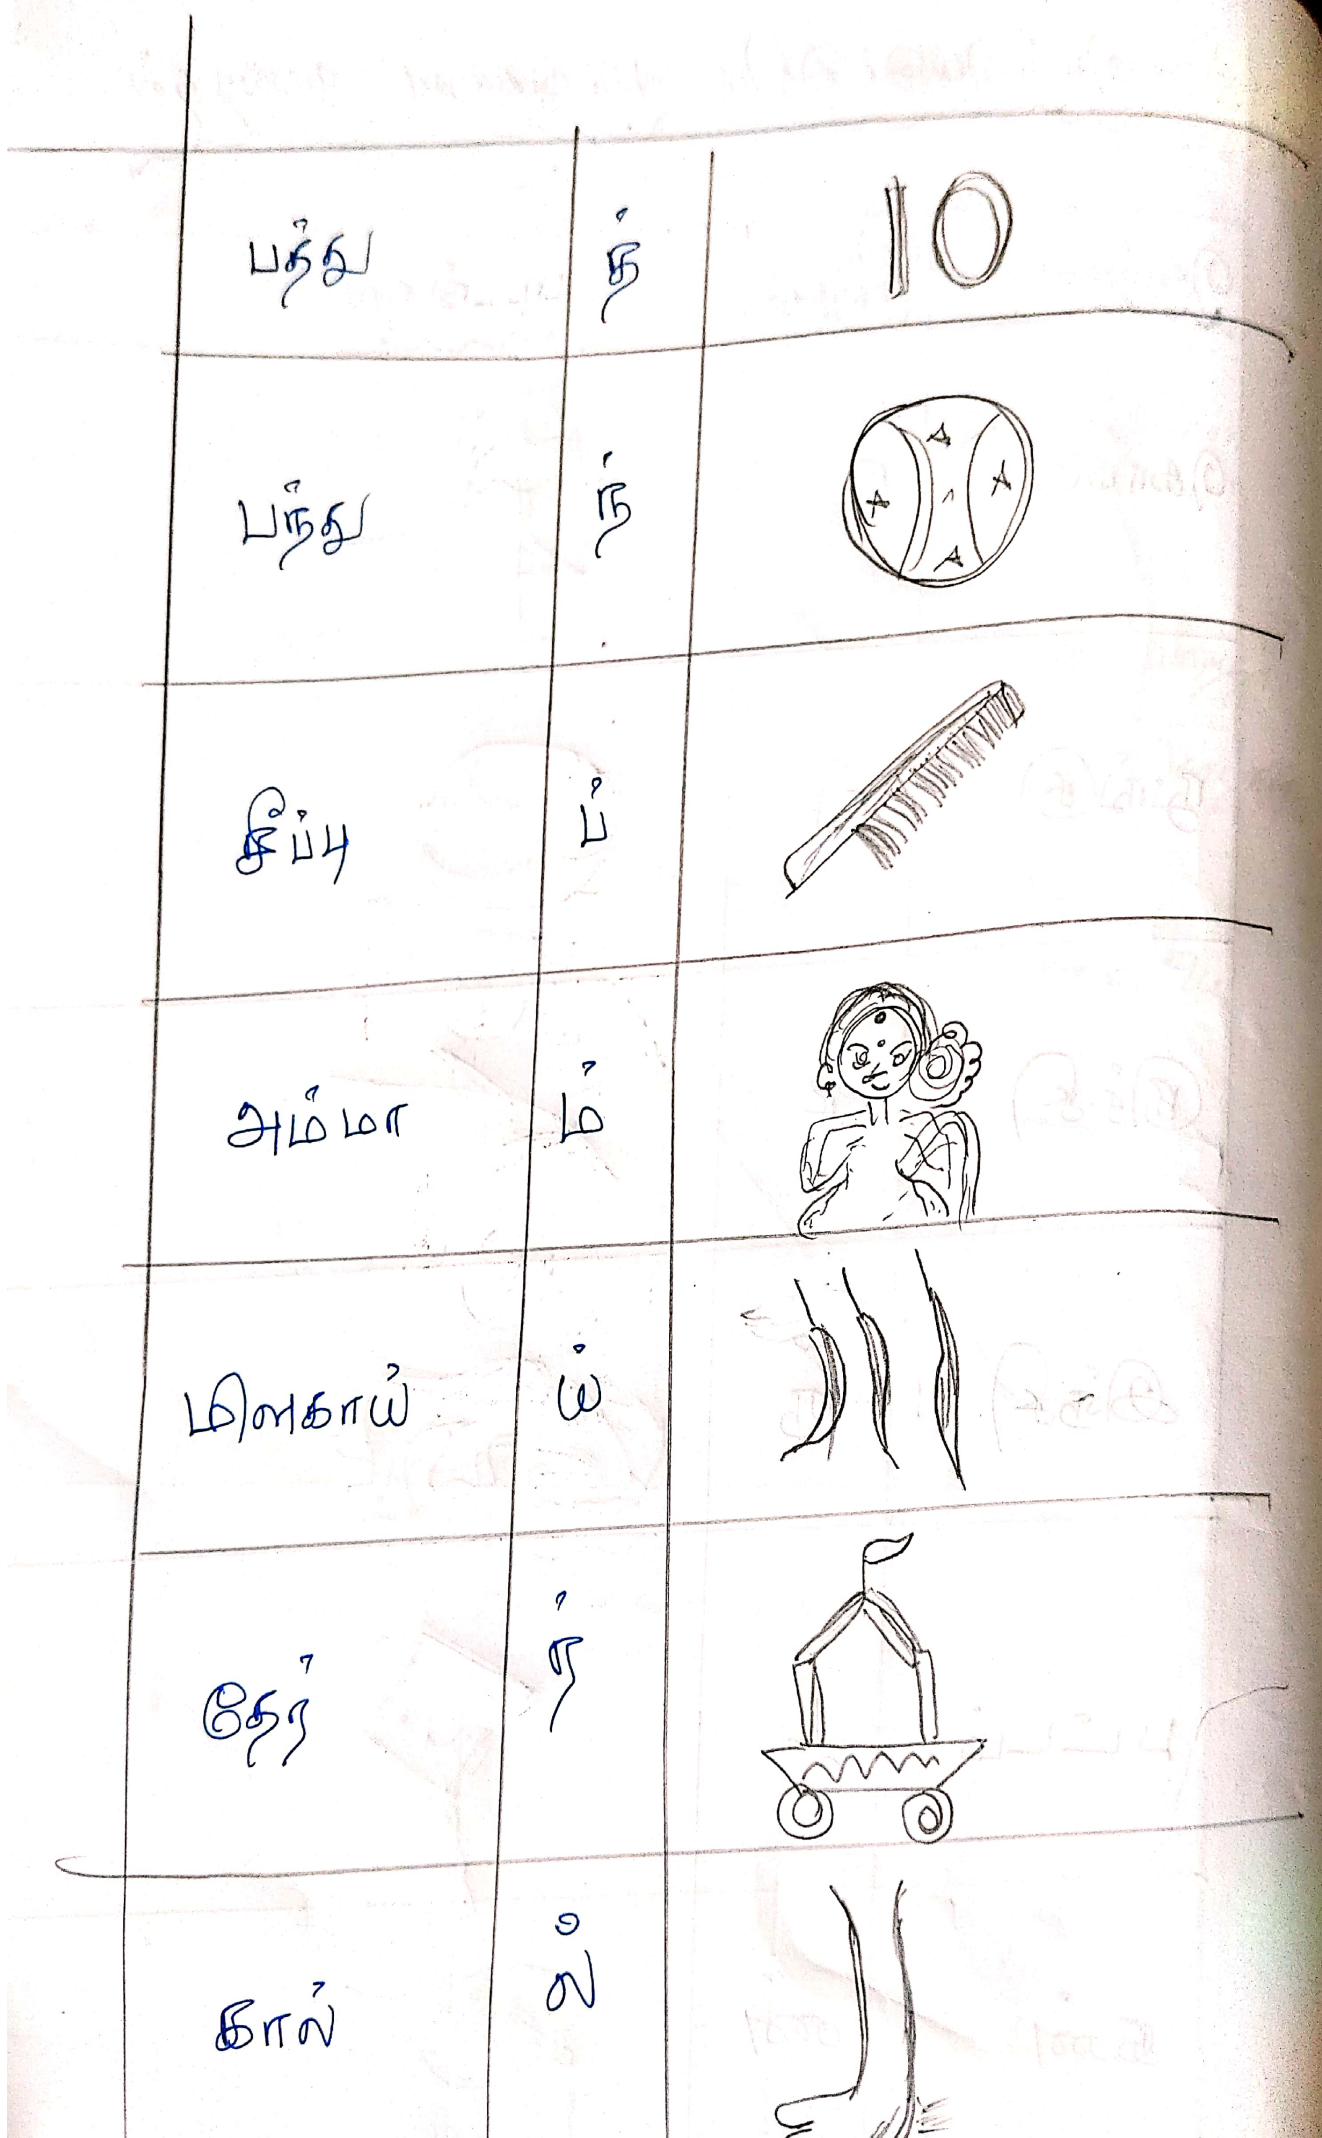 பத்து த் 10
பந்து ந்
சீப்பு ப்
அம்மா ம்
மிளகாய் ய்
தேர் ர்
கால் ல்